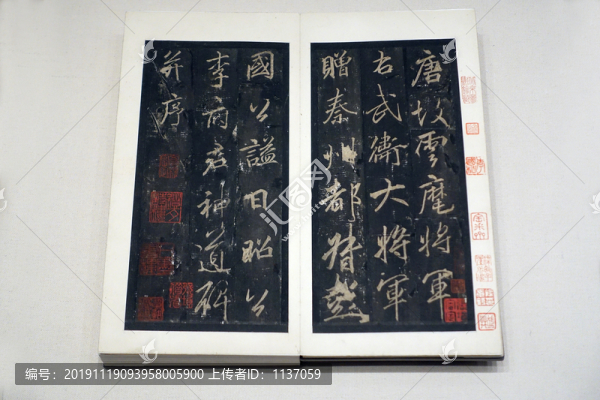 唐故雲麾將軍
右武衛大將軍
贈秦州都督彭
國公謚曰昭公
李府君神道碑
并序
编号：20191119093958005900 上传者ID：1137059